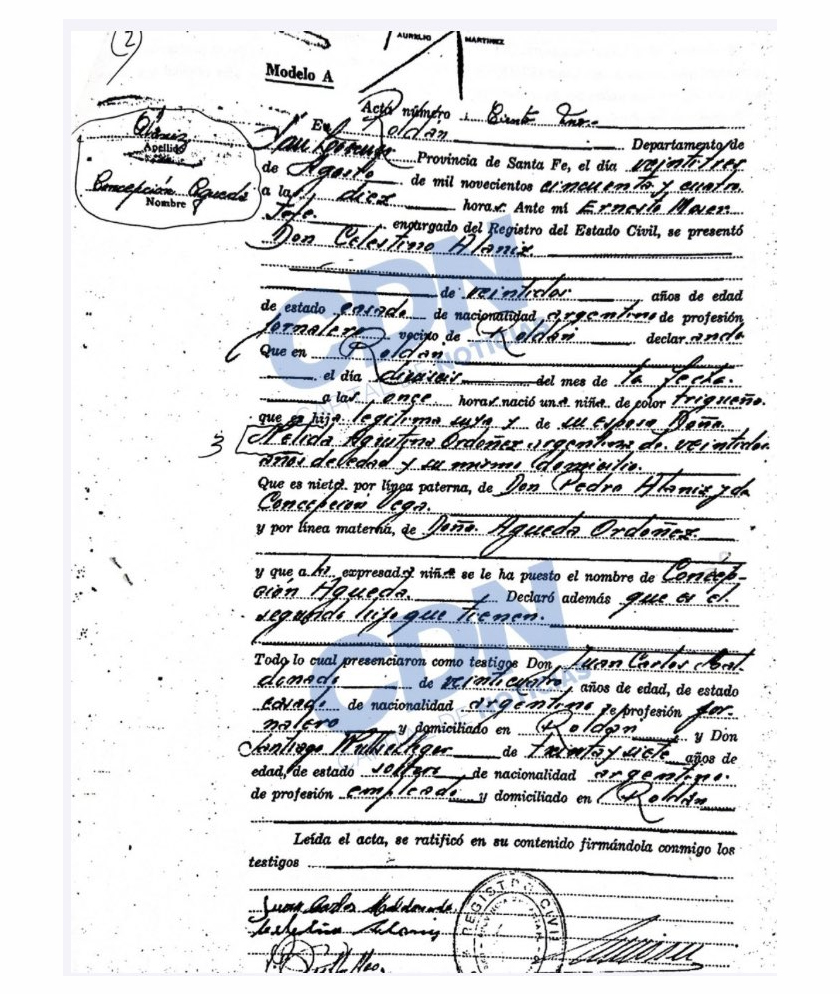 (2)
AURELIO MARTINEZ
Modelo A
Acta número Ciento
Alaniz
Apellido
Concepción Agueda
Nombre
En Roldán Departamento de
San Lorenzo Provincia de Santa Fe, el día veintitres
de Agosto de mil novecientos cincuenta y cuatro
a las diez horas. Ante mí Ernesto Moser
Jefe. encargado del Registro del Estado Civil, se presentó
Don Celestino Alaniz
de veintidos años de edad
de estado casado de nacionalidad argentino de profesión
jornalero vecino de Roldán declarando
Que en Roldán
el día del mes de la fecha.
a las once horas nació una niña de color trigueño.
que es hija legítima suya y de su esposa Doña.
3 Nelida Agustina Ordoñez argentina de veintidos
años de edad y su mismo domicilio.
Que es nieta. por línea paterna, de Don Pedro Alaniz y da
Concepción Vega.
y por línea materna, de Doña. Agueda Ordoñez.
y que a la expresada niña se le ha puesto el nombre de Concep-
ción Agueda. Declaró además que es el
segundo hijo que tienen.
Todo lo cual presenciaron como testigos Don Juan Carlos Mal
donado de veinticuatro años de edad, de estado
casado de nacionalidad argentino de profesión jor-
nalero y domiciliado en Roldán y Don
Santiago de treinta y siete años de
edad, de estado soltero de nacionalidad argentino.
de profesión empleado y domiciliado en Roldán
Leída el acta, se ratificó en su contenido firmándola conmigo los
testigos
Juan Carlos Maldonado
Celestino Alaniz
REGISTRO CIVIL
CDN
CAPITAL DE NOTICIAS
CDN
CAPITAL DE NOTICIAS